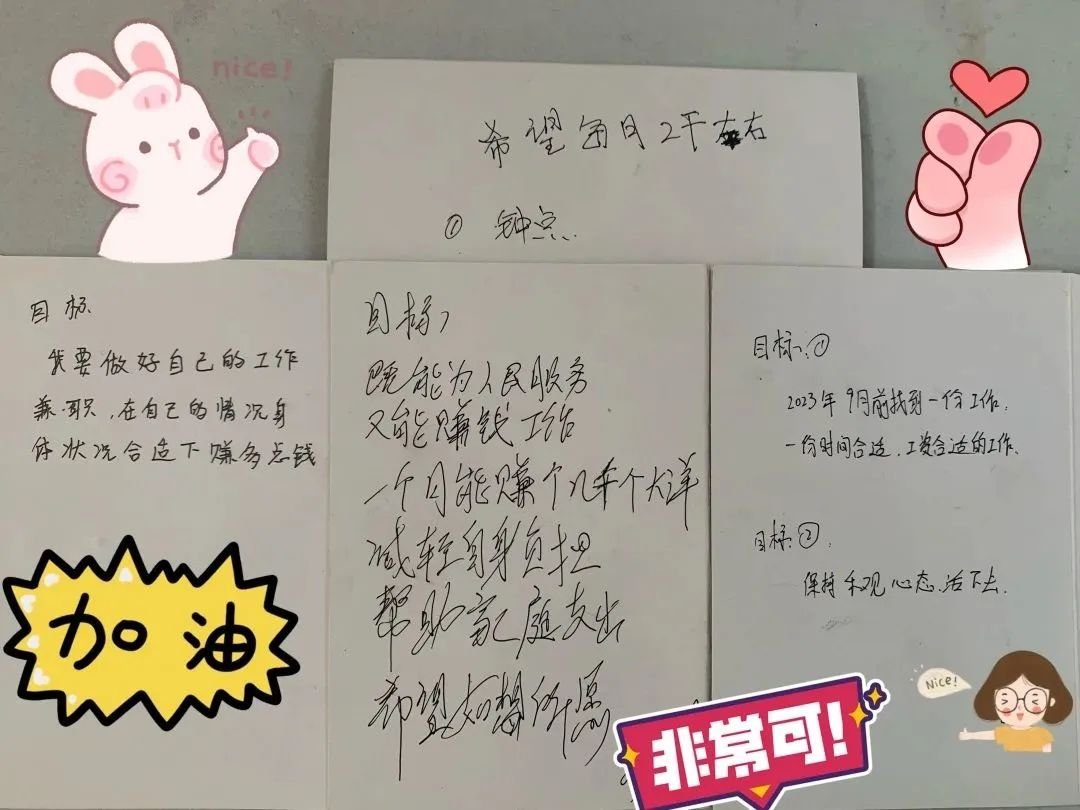 nice!
希望每月2千左右
① 钟点
目标
我要做好自己的工作
兼职,在自己的情况身
体状况合适下赚多点钱
加油
目标,
既能为人民服务
又能赚钱工作
一个月能赚个几千个大洋
减轻自身负担
帮助家庭支出
希望如想所愿
目标:①
2023年9月前找到一份工作.
一份时间合适、工资合适的工作.
目标②.
保持乐观心态.活下去.
Nice!
非常可!